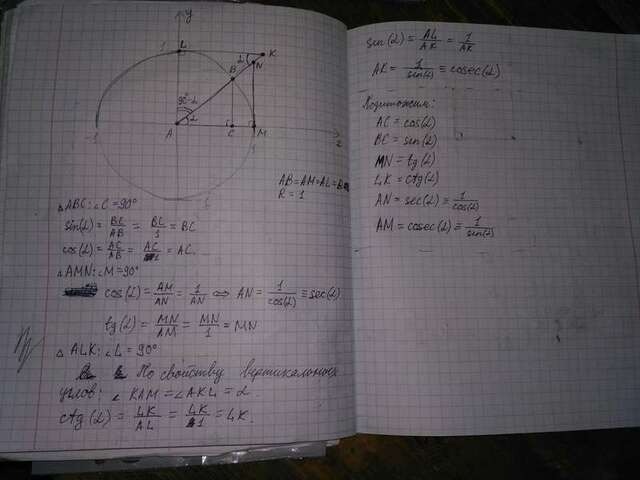 y
1
L
K
α
N
B
90°-α
α
-1
A
C
M
1
x
-1
AB=AM=AL=
R = 1
△ABC: ∠C = 90°
sin(α) = BC/AB = BC/1 = BC
cos(α) = AC/AB = AC/1 = AC.
△AMN: ∠M = 90°
cos(α) = AM/AN = 1/AN ⇔ AN = 1/cos(α) ≡ sec(α)
tg(α) = MN/AM = MN/1 = MN
△ ALK: ∠L = 90°
По свойству вертикальных
углов: ∠ KAM = ∠AKL = α.
ctg(α) = LK/AL = LK/1 = LK.
sin(α) = AL/AK = 1/AK
AK = 1/sin(α) ≡ cosec(α)
Подытожим:
AC = cos(α)
BC = sin(α)
MN = tg(α)
LK = ctg(α)
AN = sec(α) ≡ 1/cos(α)
AM = cosec(α) ≡ 1/sin(α)